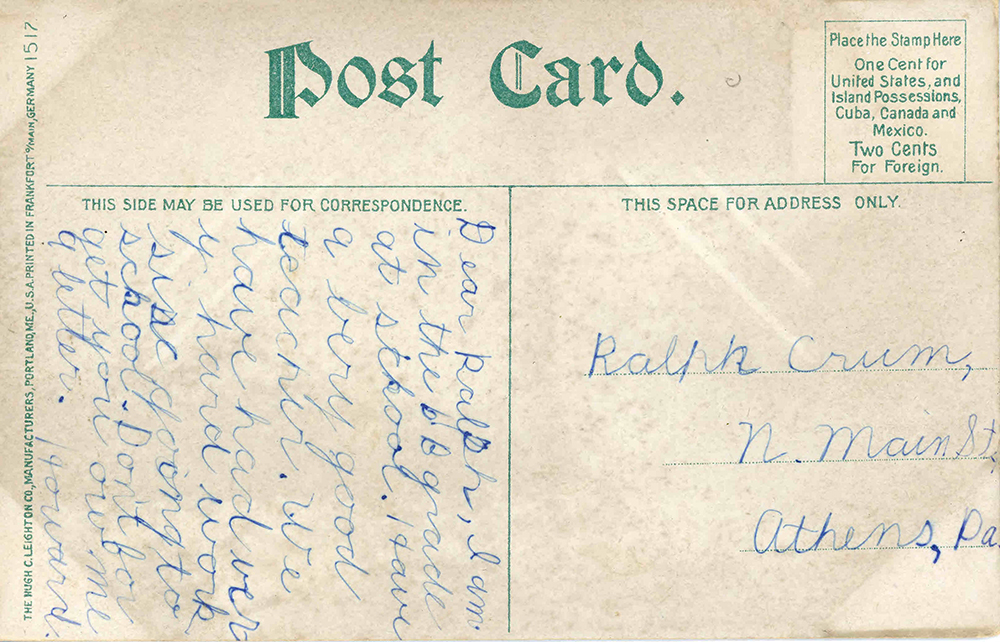 Post Card.
Place the Stamp Here
One Cent for
United States, and
Island Possessions,
Cuba, Canada and
Mexico.
Two Cents
For Foreign.
THIS SIDE MAY BE USED FOR CORRESPONDENCE.
THIS SPACE FOR ADDRESS ONLY.
Dear Ralph, I am
in the 6B grade
at school. I have
a bery good
teacher. We
have had ver
y hard work
sinc going to
school. Don't for
get you owe me
a letter. Howard.
Ralph Crum,
N. Main St.
Athens, Pa.
THE HUGH C. LEIGHTON CO., MANUFACTURERS, PORTLAND, ME., U.S.A. PRINTED IN FRANKFORT o/MAIN, GERMANY 1517